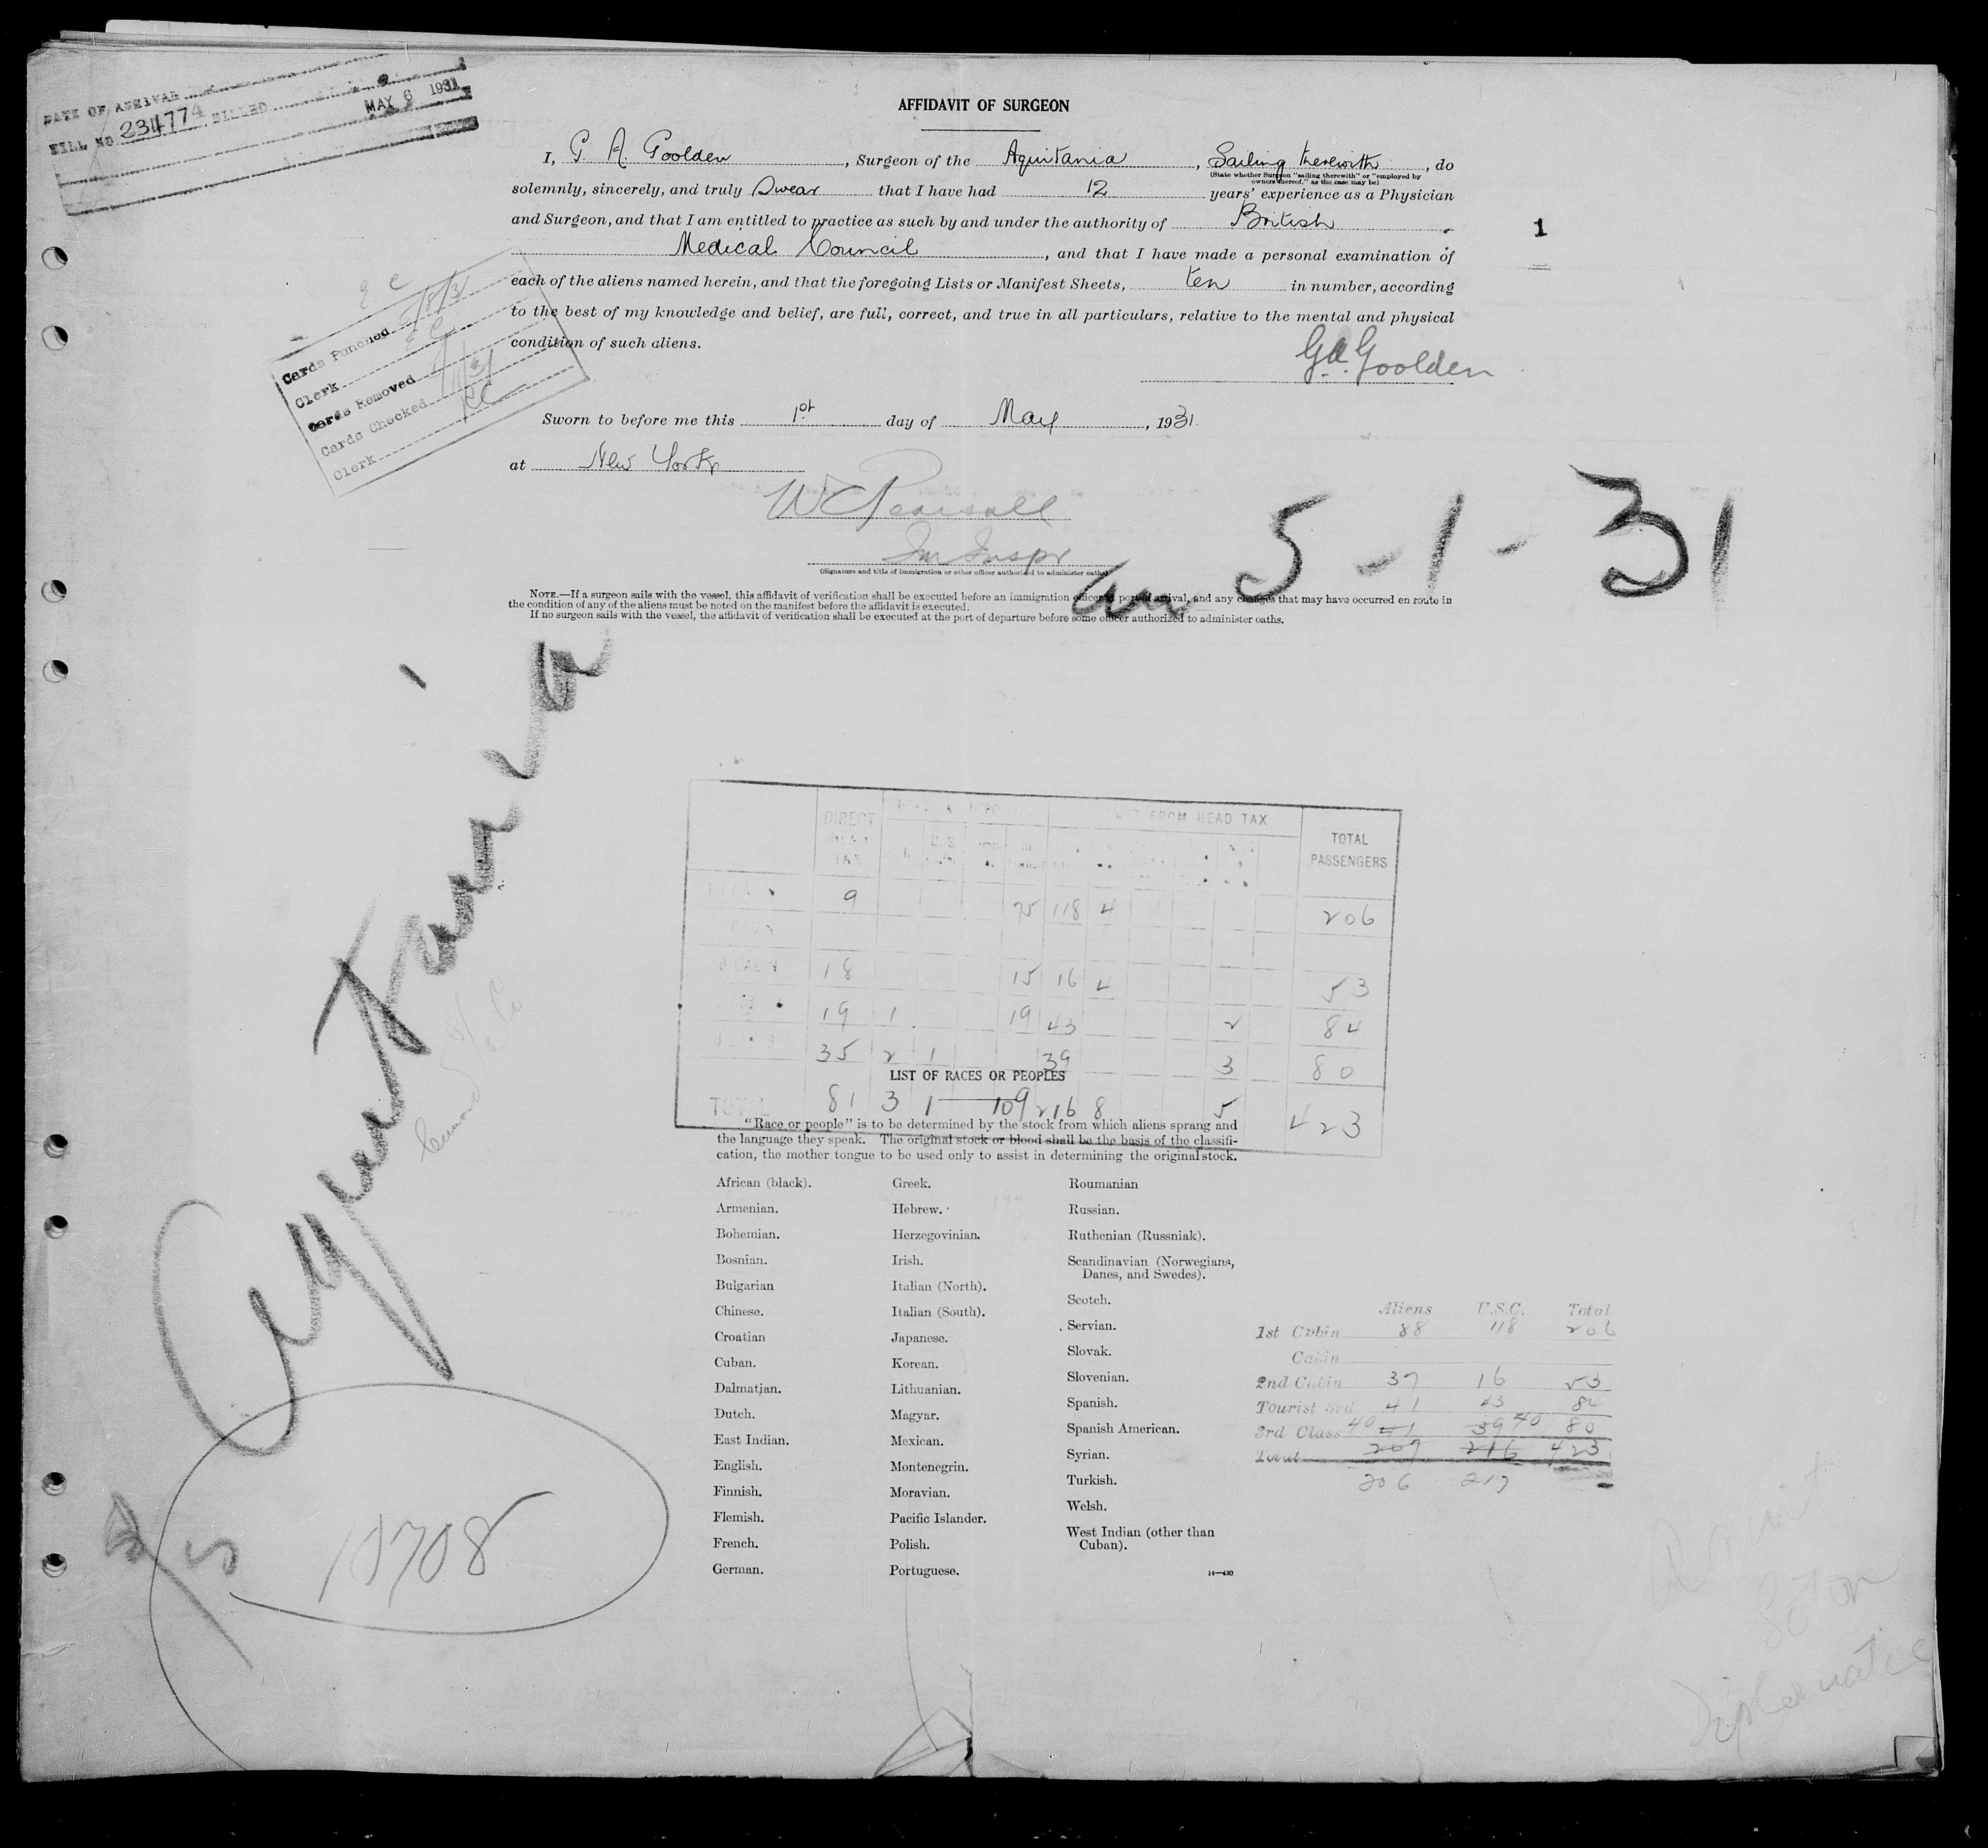 DATE OF ARRIVAL
BILL No 234774 BILLED MAY 6 1931
AFFIDAVIT OF SURGEON
I, G A. Goolden, Surgeon of the Aquitania, Sailing therewith, do
(State whether Surgeon "sailing therewith" or "employed by
owners thereof," as the case may be)
solemnly, sincerely, and truly Swear that I have had 12 years' experience as a Physician
and Surgeon, and that I am entitled to practice as such by and under the authority of British
Medical Council, and that I have made a personal examination of
each of the aliens named herein, and that the foregoing Lists or Manifest Sheets, ten in number, according
to the best of my knowledge and belief, are full, correct, and true in all particulars, relative to the mental and physical
condition of such aliens.
G A Goolden
1
Cards Punched
Clerk
Cards Removed
Cards Checked
Clerk
Sworn to before me this 1st day of May, 1931.
at New York
W C Pearsall
Im Inspr
(Signature and title of immigration or other officer authorized to administer oaths)
am 5-1-31
NOTE.—If a surgeon sails with the vessel, this affidavit of verification shall be executed before an immigration officer at port of arrival, and any changes that may have occurred en route in
the condition of any of the aliens must be noted on the manifest before the affidavit is executed.
If no surgeon sails with the vessel, the affidavit of verification shall be executed at the port of departure before some officer authorized to administer oaths.
Aquitania
DIRECT HEAD TAX
FROM HEAD TAX
TOTAL PASSENGERS
9 75 118 4 206
18 15 16 4 53
19 1 19 43 2 84
35 2 1 39 3 80
TOTAL 81 3 1 109 216 8 5 423
LIST OF RACES OR PEOPLES
"Race or people" is to be determined by the stock from which aliens sprang and
the language they speak. The original stock or blood shall be the basis of the classifi-
cation, the mother tongue to be used only to assist in determining the original stock.
African (black).
Armenian.
Bohemian.
Bosnian.
Bulgarian
Chinese.
Croatian
Cuban.
Dalmatian.
Dutch.
East Indian.
English.
Finnish.
Flemish.
French.
German.
Greek.
Hebrew.
Herzegovinian.
Irish.
Italian (North).
Italian (South).
Japanese.
Korean.
Lithuanian.
Magyar.
Mexican.
Montenegrin.
Moravian.
Pacific Islander.
Polish.
Portuguese.
Roumanian
Russian.
Ruthenian (Russniak).
Scandinavian (Norwegians,
Danes, and Swedes).
Scotch.
Servian.
Slovak.
Slovenian.
Spanish.
Spanish American.
Syrian.
Turkish.
Welsh.
West Indian (other than
Cuban).
14—430
Aliens U.S.C. Total
1st Cabin 88 118 206
Cabin
2nd Cabin 37 16 53
Tourist 3rd 41 43 84
3rd Class 40 41 39 40 80
Total 207 216 423
206 217
10708
Diplomatic